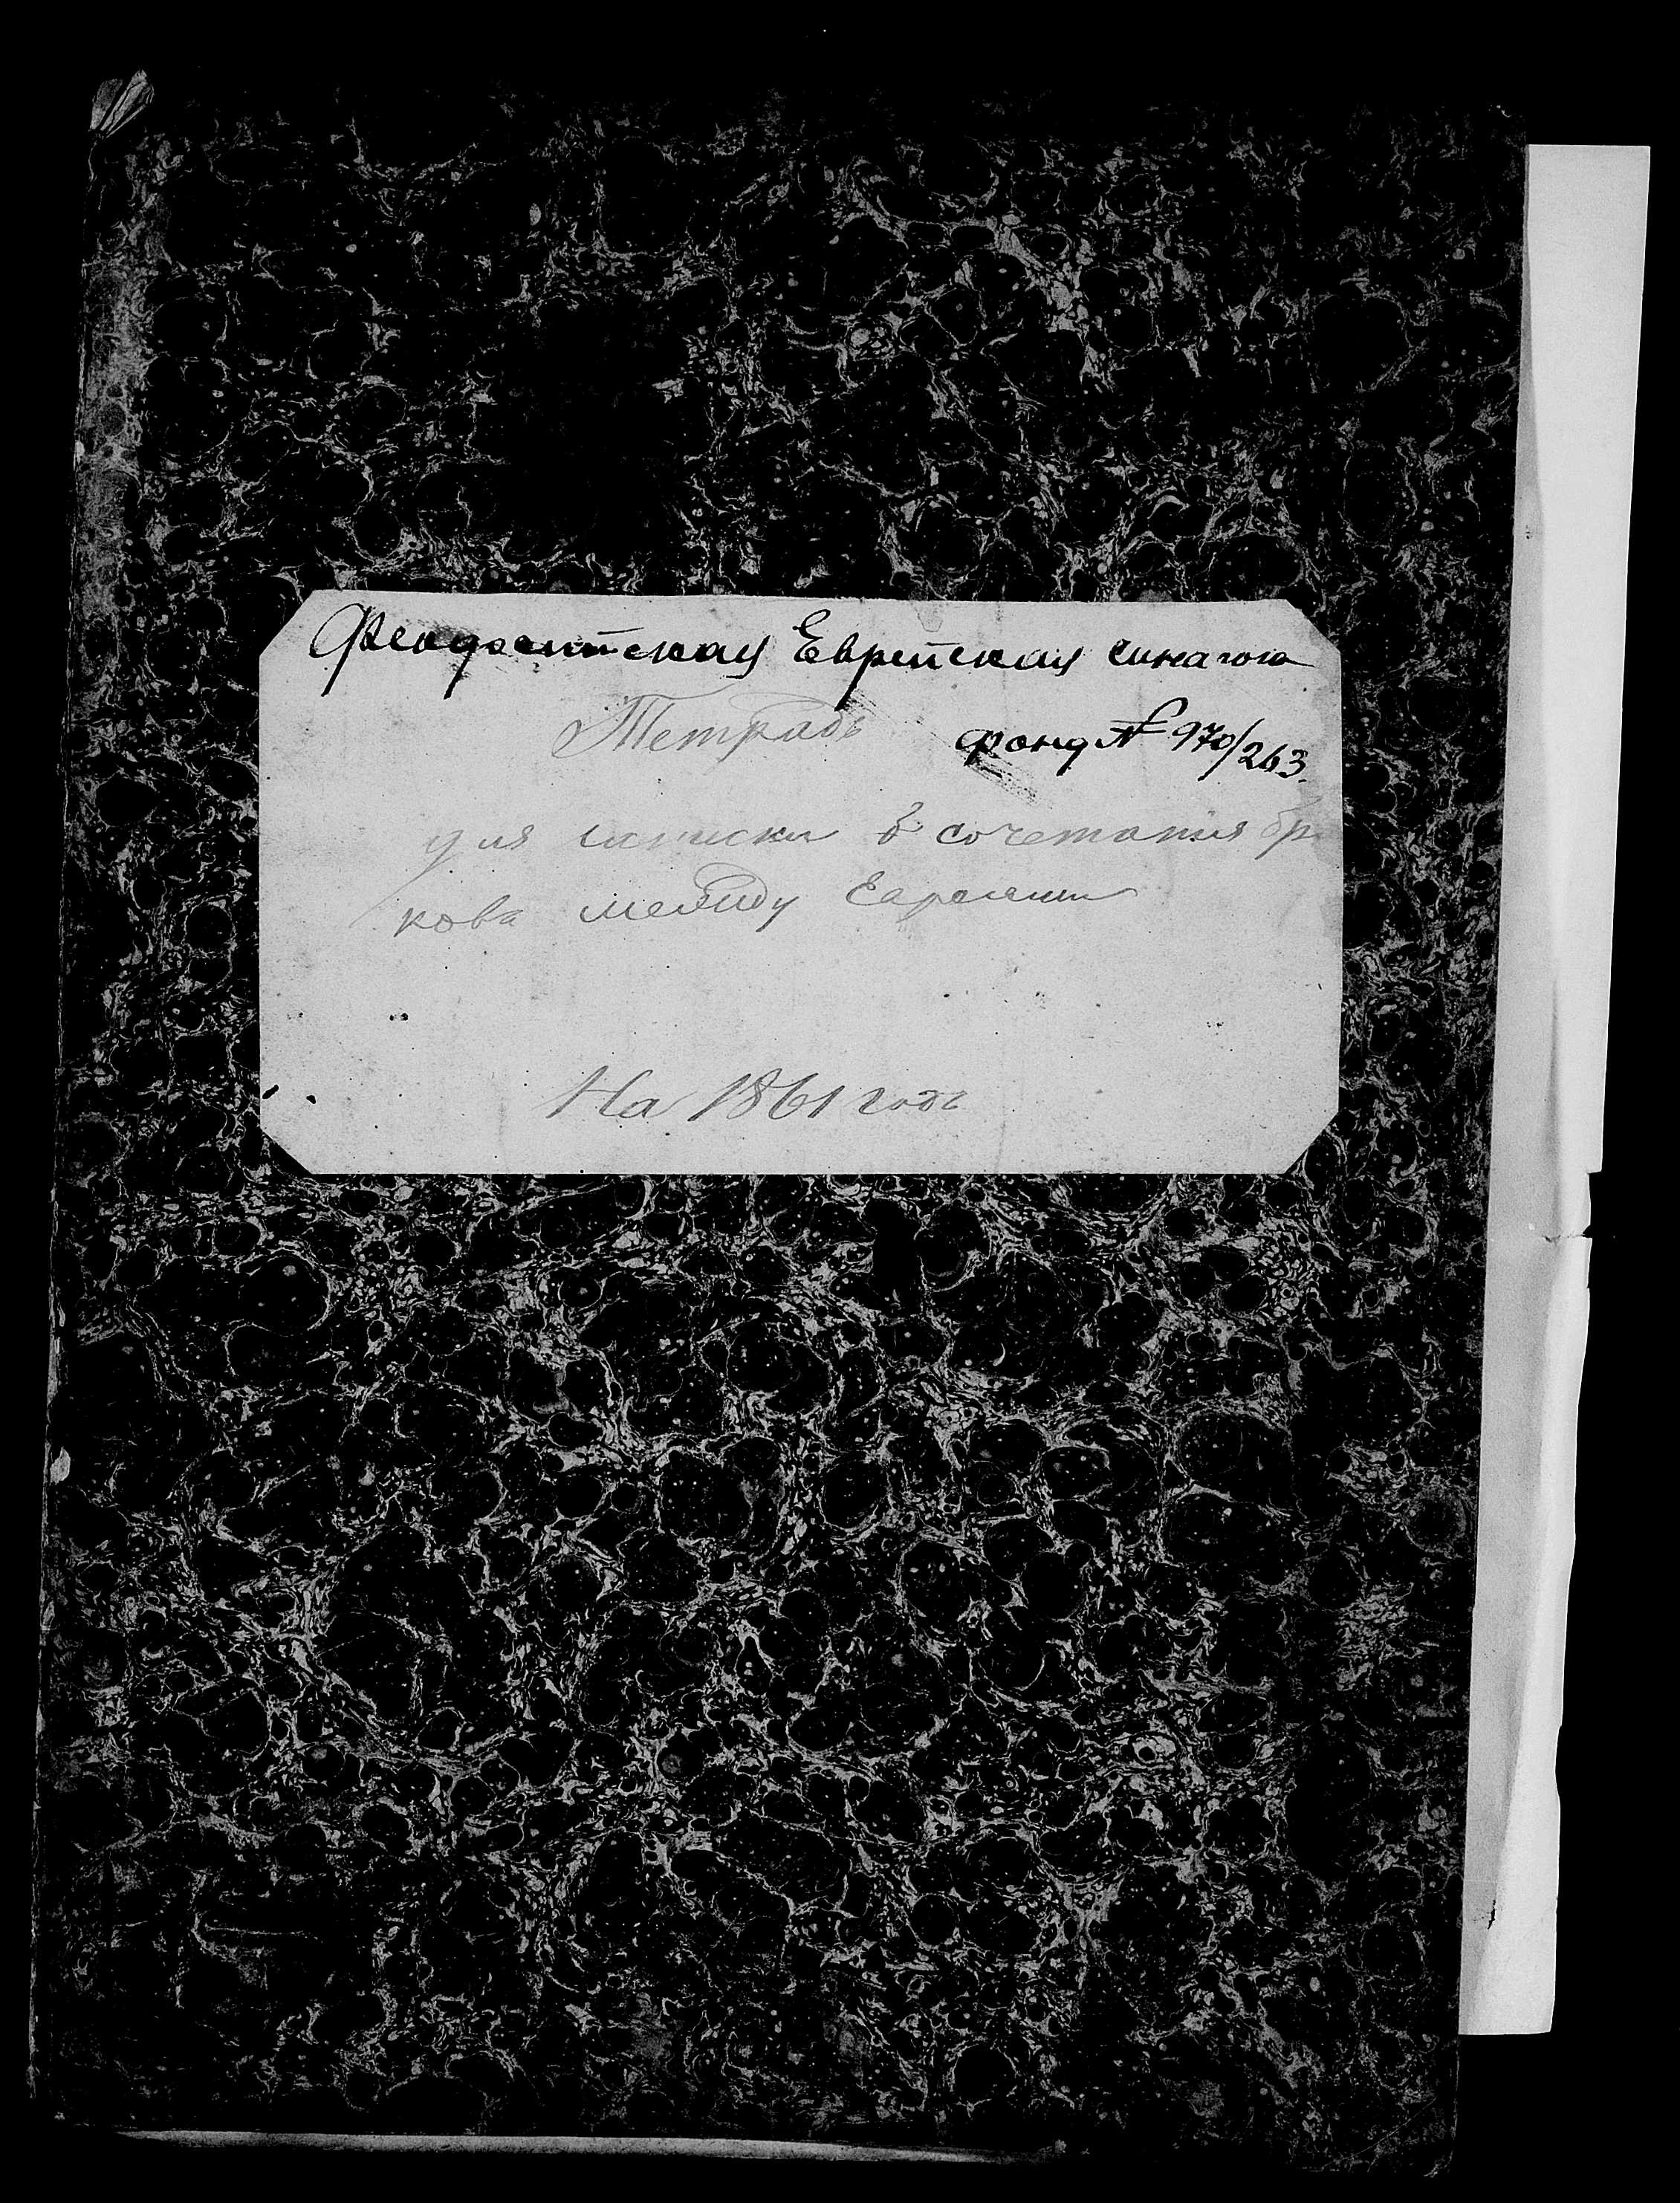 Феодосийская Еврейская синагога
Тетрадь
фонд № 970/263.
для записки о сочетании бра
кова между Евреями
На 1861 годъ